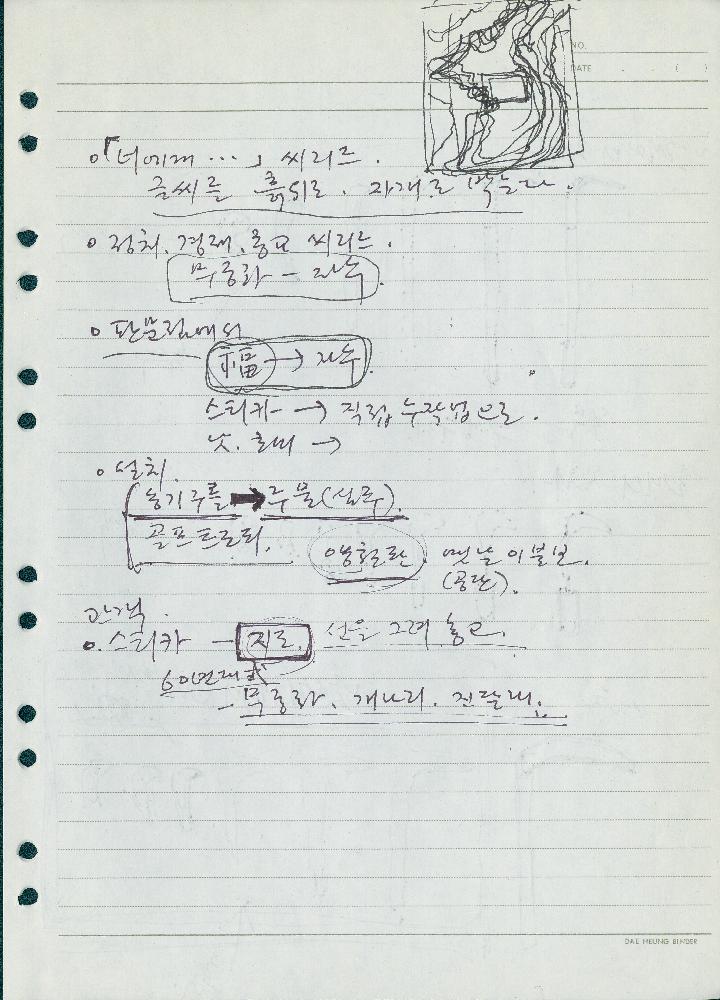 NO.
DATE . . ( )
○「너에게 …」 씨리즈.
글씨를 흙위로. 자개로 박는다.
○ 정치. 경제. 종교 씨리즈.
무궁화 — 자수.
○ 판문점에서
福 → 자수.
스티카 → 직접 누작법으로.
낫. 호미 →
○ 설치.
농기구를 → 주물(실루).
골프트로피.
양철판. 옛날 이불보.
(공단).
관객.
○. 스티카 — 지도. 선을 그려 놓고.
60년대式
- 무궁화. 개나리. 진달래.
DAE HEUNG BINDER